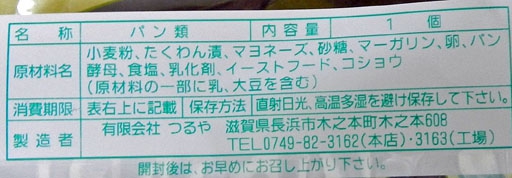 名称 パン類 内容量 1個
原材料名 小麦粉、たくわん漬、マヨネーズ、砂糖、マーガリン、卵、パン
酵母、食塩、乳化剤、イーストフード、コショウ
(原材料の一部に乳、大豆を含む)
消費期限 表右上に記載 保存方法 直射日光、高温多湿を避け保存して下さい。
製造者 有限会社 つるや 滋賀県長浜市木之本町木之本608
TEL0749-82-3162(本店)・3163(工場)
開封後は、お早めにお召し上がり下さい。